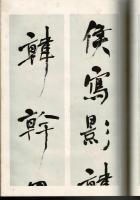 侯寫影韓
韓幹